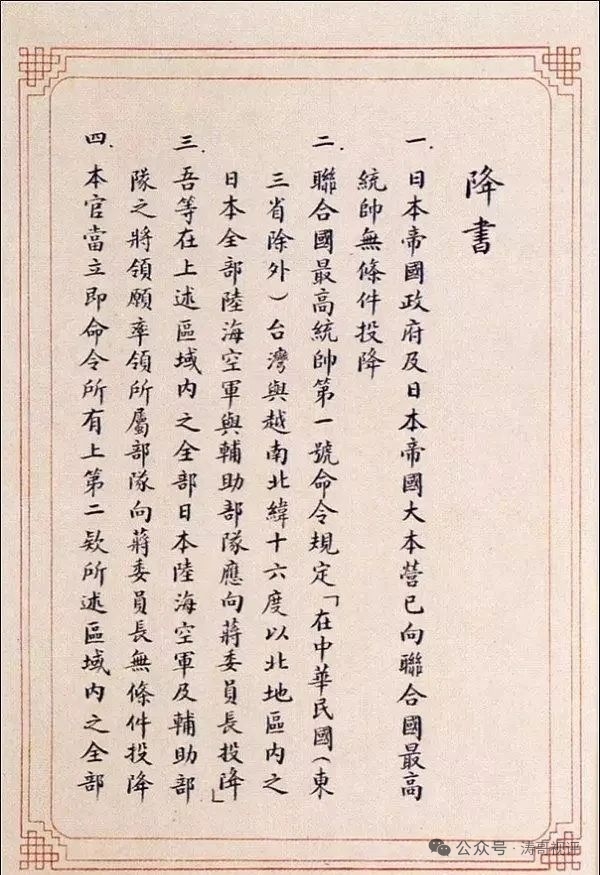 降書
一.日本帝國政府及日本帝國大本營已向聯合國最高
統帥無條件投降
二.聯合國最高統帥第一號命令規定「在中華民國(東
三省除外)台灣與越南北緯十六度以北地區內之
日本全部陸海空軍與輔助部隊應向蔣委員長投降」
三.吾等在上述區域內之全部日本陸海空軍及輔助部
隊之將領願率領所屬部隊向蔣委員長無條件投降
四.本官當立即命令所有上第二款所述區域內之全部
公众号·涛哥视评